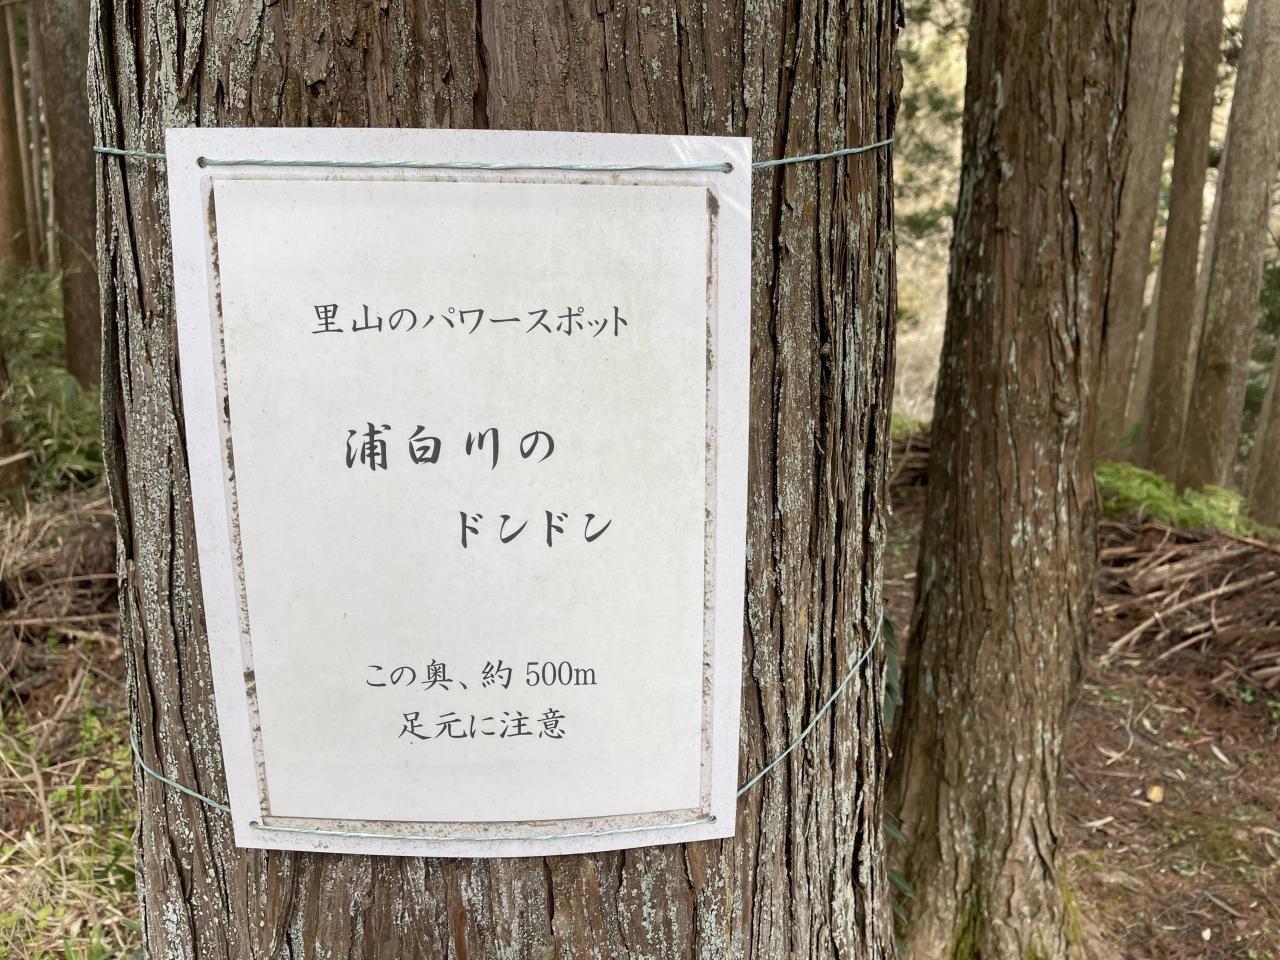 里山のパワースポット
浦白川の
ドンドン
この奥、約 500m
足元に注意